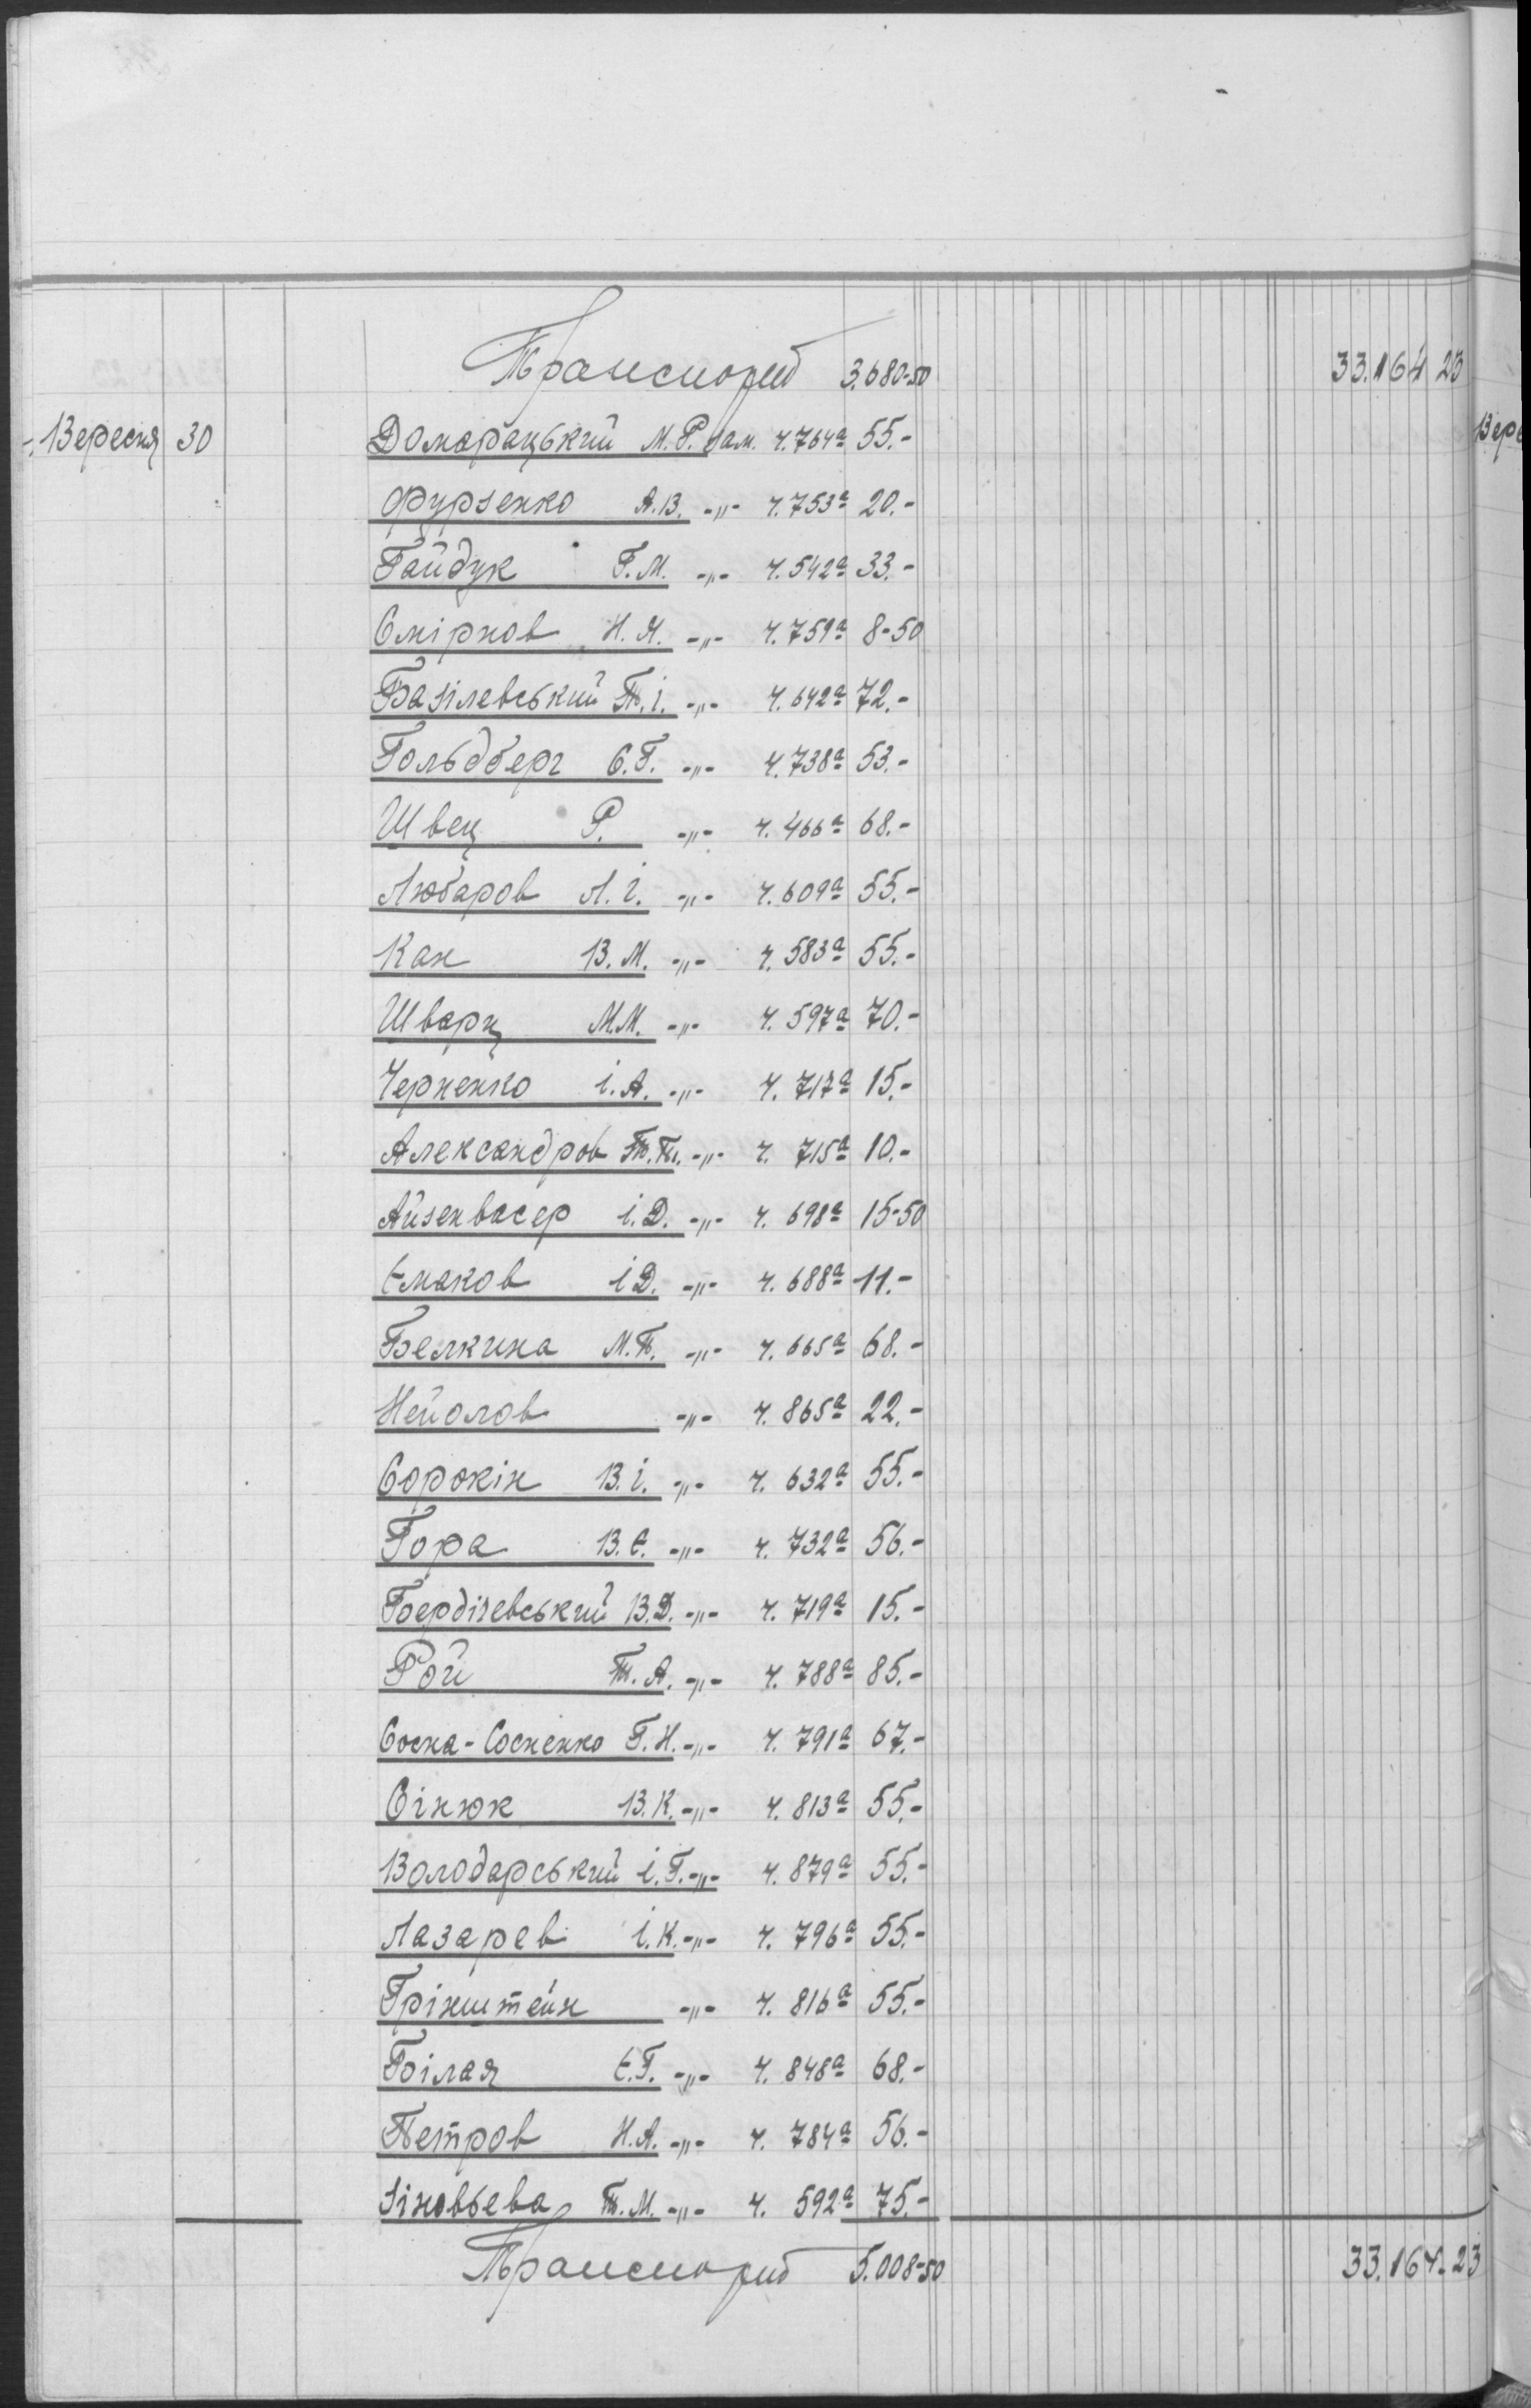 Транспорт 3.680-50 33.164 23
Вересня 30 Домарацький М.Р. зам. ч. 764а 55.-
Фурзенко А.В. -"- ч. 753а 20.-
Гайдук Г.М. -"- ч. 542а 33.-
Смірнов Н.Я. -"- ч. 759а 8-50
Базілевський П.і. -"- ч. 642а 72.-
Гольдберг С.Г. -"- ч. 738а 53.-
Швец Р. -"- ч. 466а 68.-
Любаров Л.і. -"- ч. 609а 55.-
Кан В.М. -"- ч. 583а 55.-
Шварц М.М. -"- ч. 597а 70.-
Черненко і.А. -"- ч. 717а 15.-
Александров -"- ч. 715а 10.-
Айзенвасер і.Д. -"- ч. 698а 15-50
Емаков і Д. -"- ч. 688а 11.-
Белкина М.П. -"- ч. 665а 68.-
Нейолов -"- ч. 865а 22.-
Сорокін В.і. -"- ч. 632а 55.-
Гора В.Є. -"- ч. 732а 56.-
Бердічевський В.Д. -"- ч. 719а 15.-
Рой Т.А. -"- ч. 788а 85.-
Соска-Сосненко Г.Н. -"- ч. 791а 67.-
Сінюк В.К. -"- ч. 813а 55.-
Володарський і.Г. -"- ч. 879а 55.-
Лазарев і.К. -"- ч. 796а 55.-
Грінштейн -"- ч. 816а 55.-
Білая Є.Г. -"- ч. 848а 68.-
Петров Н.А. -"- ч. 784а 56.-
Зіновьева Т.М. -"- ч. 592а 75.-
Транспорт 5.008-50 33.164-23